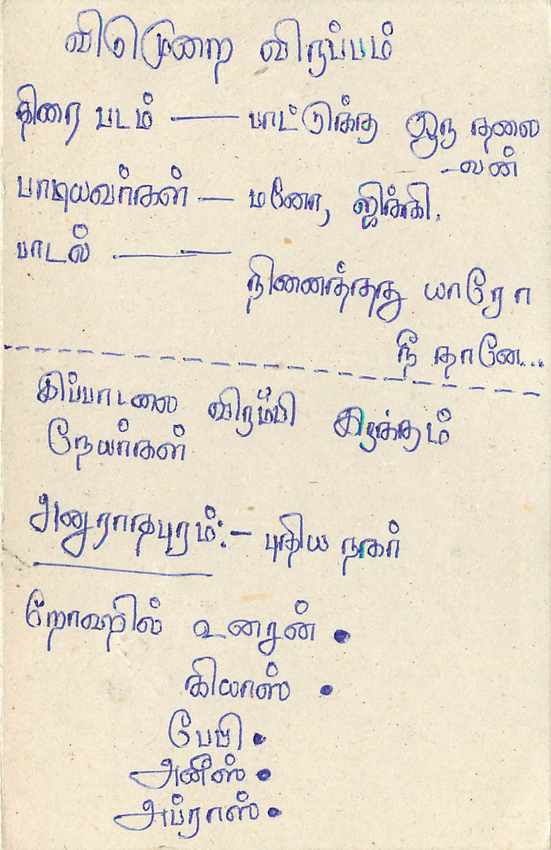 விடுமுறை விருப்பம்
திரை படம் — பாட்டுக்கு ஒரு தலை
- வன்
பாடியவர்கள் — மனோ, ஜிக்கி.
பாடல் —
நினைத்தது யாரோ
நீ தானே...
இப்பாடலை விரும்பி கேட்கும்
நேயர்கள்
அனுராதபுரம்:- புதிய நகர்
றோஹில் உசைன் •
கியாஸ் •
பேபி •
அனீஸ் •
அப்ராஸ் •